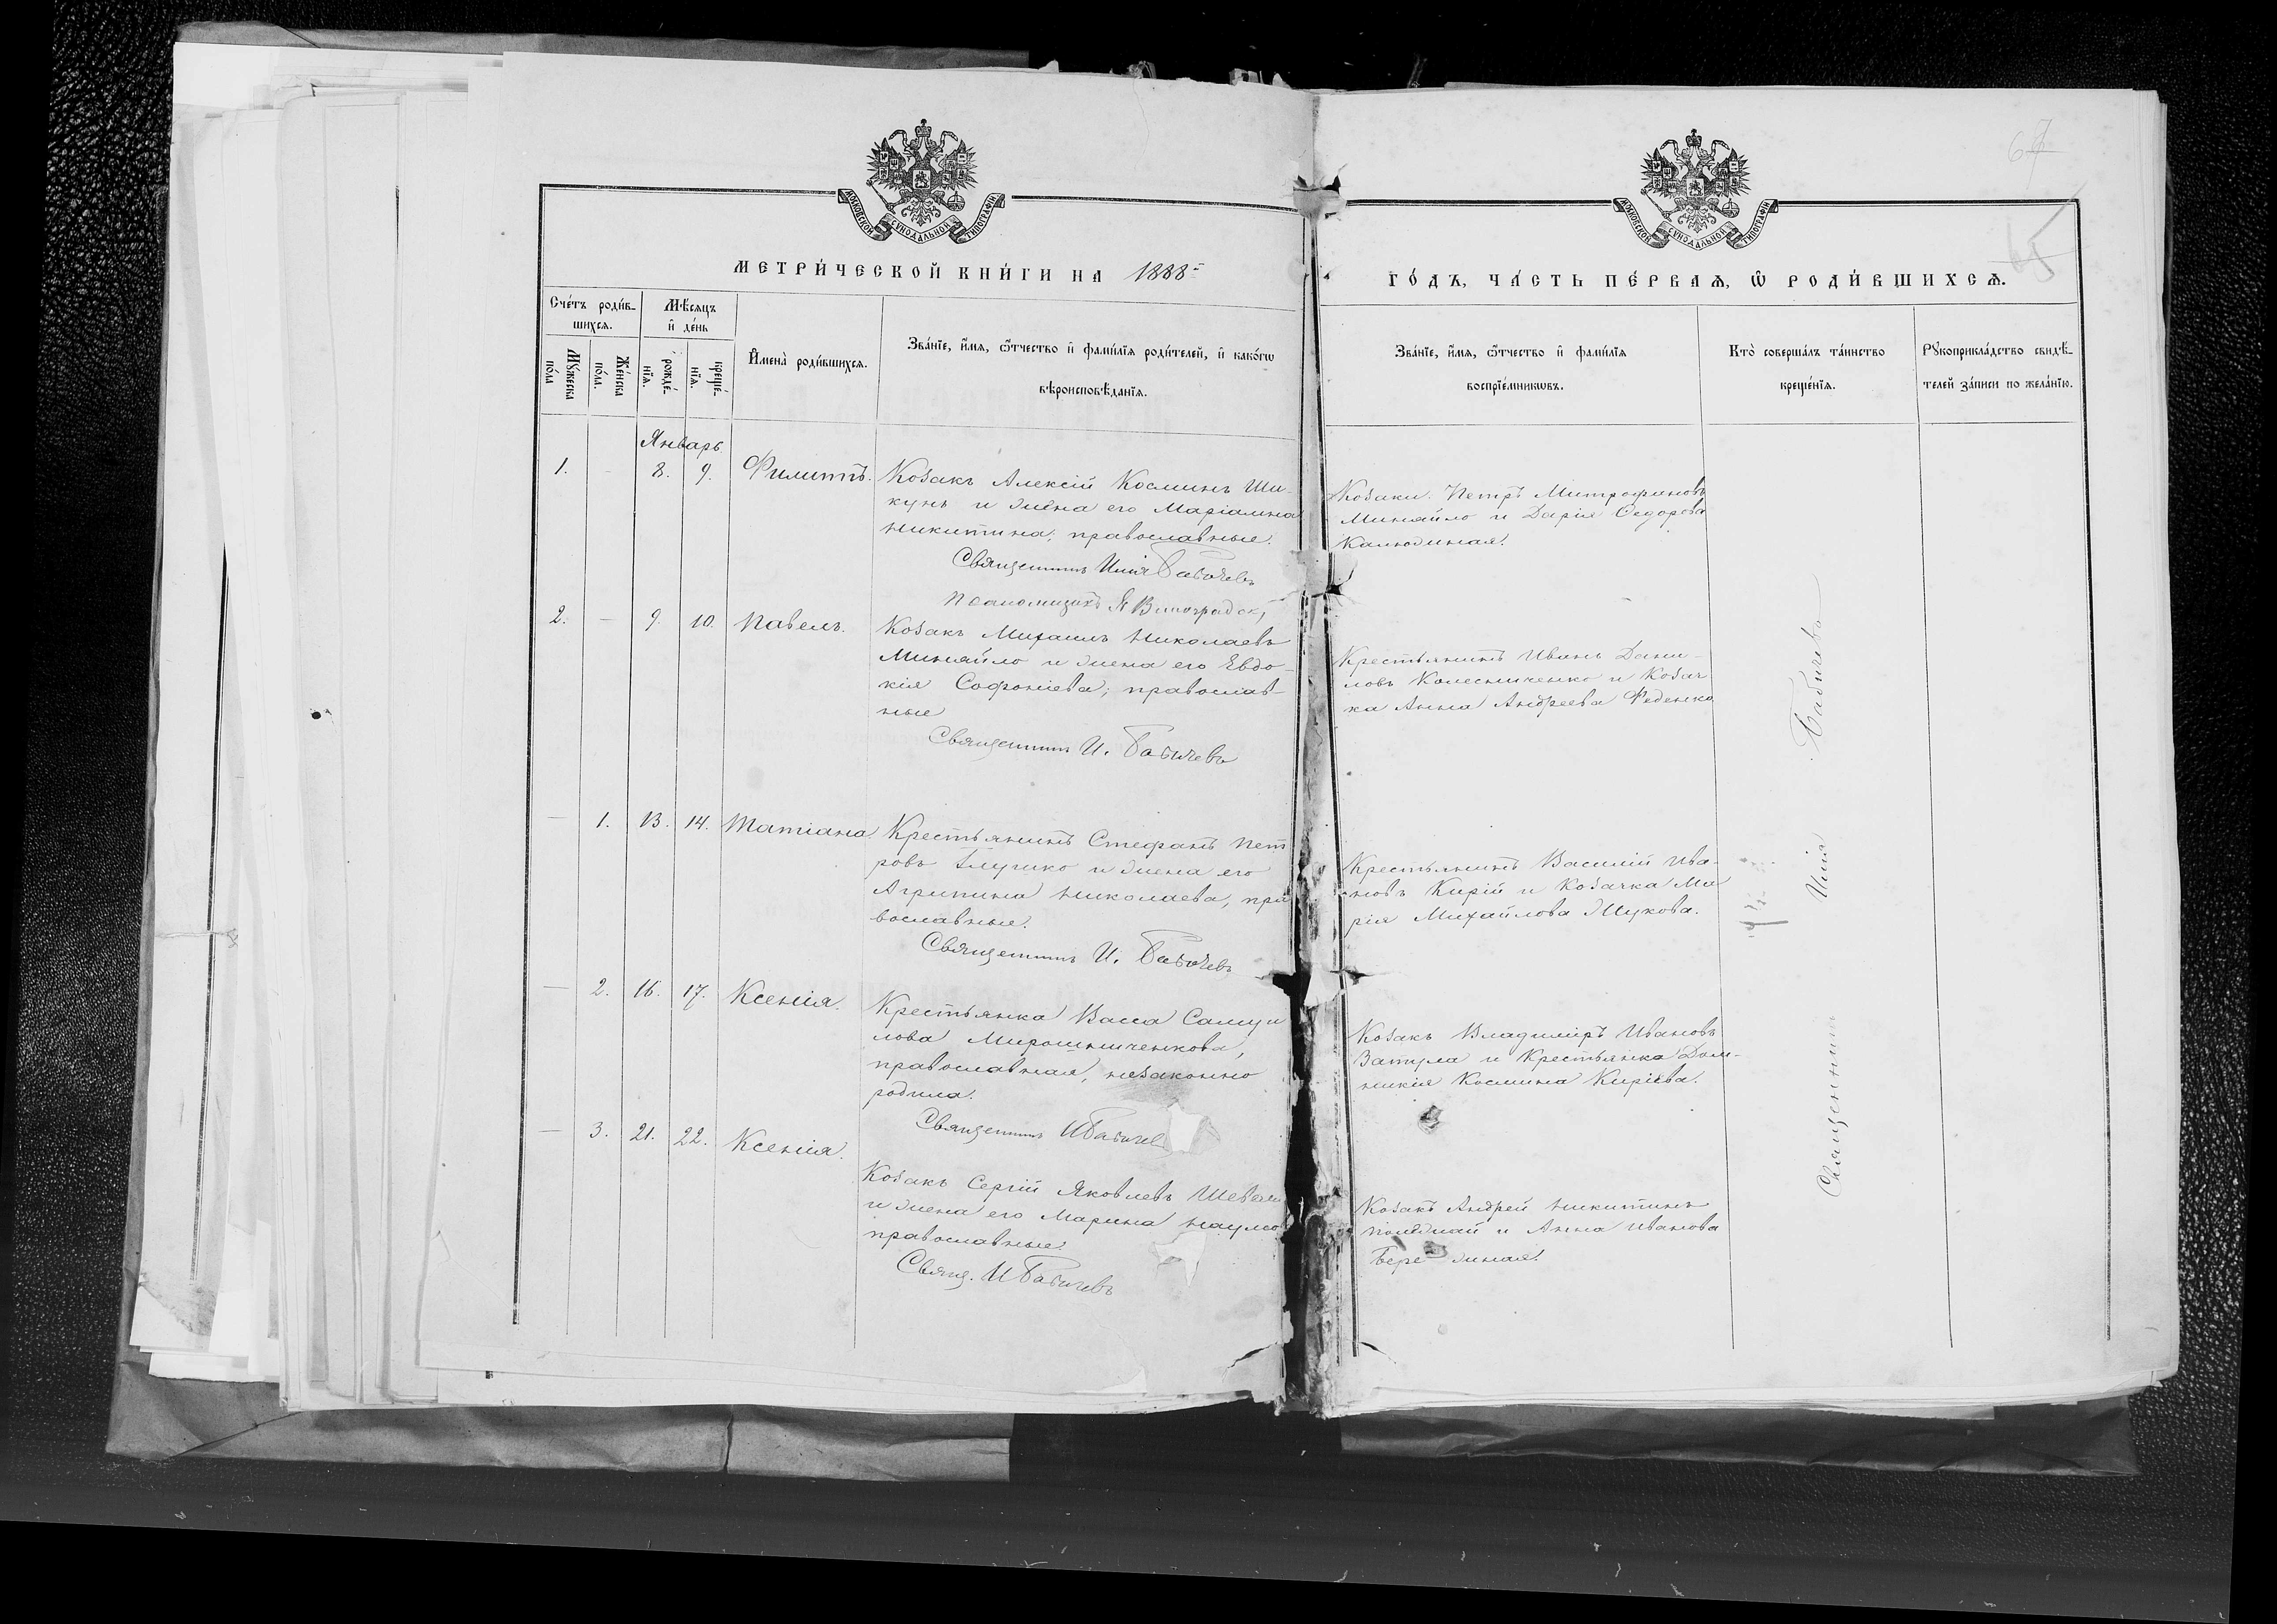 67
65
МОСКОВСКОЙ СѴНОДАЛЬНОЙ ТИПОГРАФІИ
МОСКОВСКОЙ СѴНОДАЛЬНОЙ ТИПОГРАФІИ
МЕТРИ́ЧЕСКОЙ КНИ́ГИ НА 1888-
ГО́ДЪ, ЧА́СТЬ ПЕ́РВАѦ, Ѡ҆ РОДИ́ВШИХСѦ.
Сче́тъ роди́в-
шихсѧ.
Мꙋ́жеска по́ла
Же́нска по́ла.
Мѣ́сѧцъ
и҆ де́нь
рожде́-
нїѧ.
креще́-
нїѧ.
И҆мена̀ роди́вшихсѧ.
Зва́нїе, и҆́мѧ, ѻ҆́тчество и҆ фами́лїѧ роди́телей, и҆ како́гѡ
вѣроисповѣ́данїѧ.
Зва́нїе, и҆́мѧ, ѻ҆́тчество и҆ фами́лїѧ
воспрїе́мникѡвъ.
Кто̀ соверша́лъ та́инство
креще́нїѧ.
Рꙋкоприкла́дство свидѣ́-
телей за́писи по жела́нїю.
Январь
1. - 8. 9. Филиппъ.
Козакъ Алексій Косминъ Ши-
кунъ и жена его Маріамна
Никитина, православные.
Священникъ Илія Бабичевъ
Псаломщикъ Я Виноградск
Козаки Петръ Митрофановъ
Миняйло и Дарія Ѳедорова
2. - 9. 10. Павелъ.
Козакъ Михаилъ Николаевъ
Миняйло и жена его Евдо-
кія Софоніева, православ-
ные
Священникъ И. Бабичевъ
Крестьянинъ Иванъ Дани-
ловъ Колесниченко и Козач
ка Анна Андреева Феденко
- 1. 13. 14. Татіана.
Крестьянинъ Стефанъ Пет
ровъ Глушко и жена его
Агрипина Николаева, пра
вославные.
Священникъ И. Бабичевъ
Крестьянинъ Василій Ива-
новъ Кирій и Козачка Ма
рія Михайлова Жукова.
- 2. 16. 17. Ксенія.
Крестьянка Васса Самуи
лова Мирошниченкова,
православная, незаконно
родила.
Священникъ И Бабичев
Козакъ Владиміръ Ивановъ
Ватула и Крестьянка Дом-
никія Космина Киріева.
- 3. 21. 22. Ксенія.
Козакъ Сергій Яковлевъ
и жена его Марина Наумо
православные.
Свящ. И Бабичевъ
Козакъ Андрей Никитинъ
и Анна Иванова
Священникъ Илія Бабичевъ